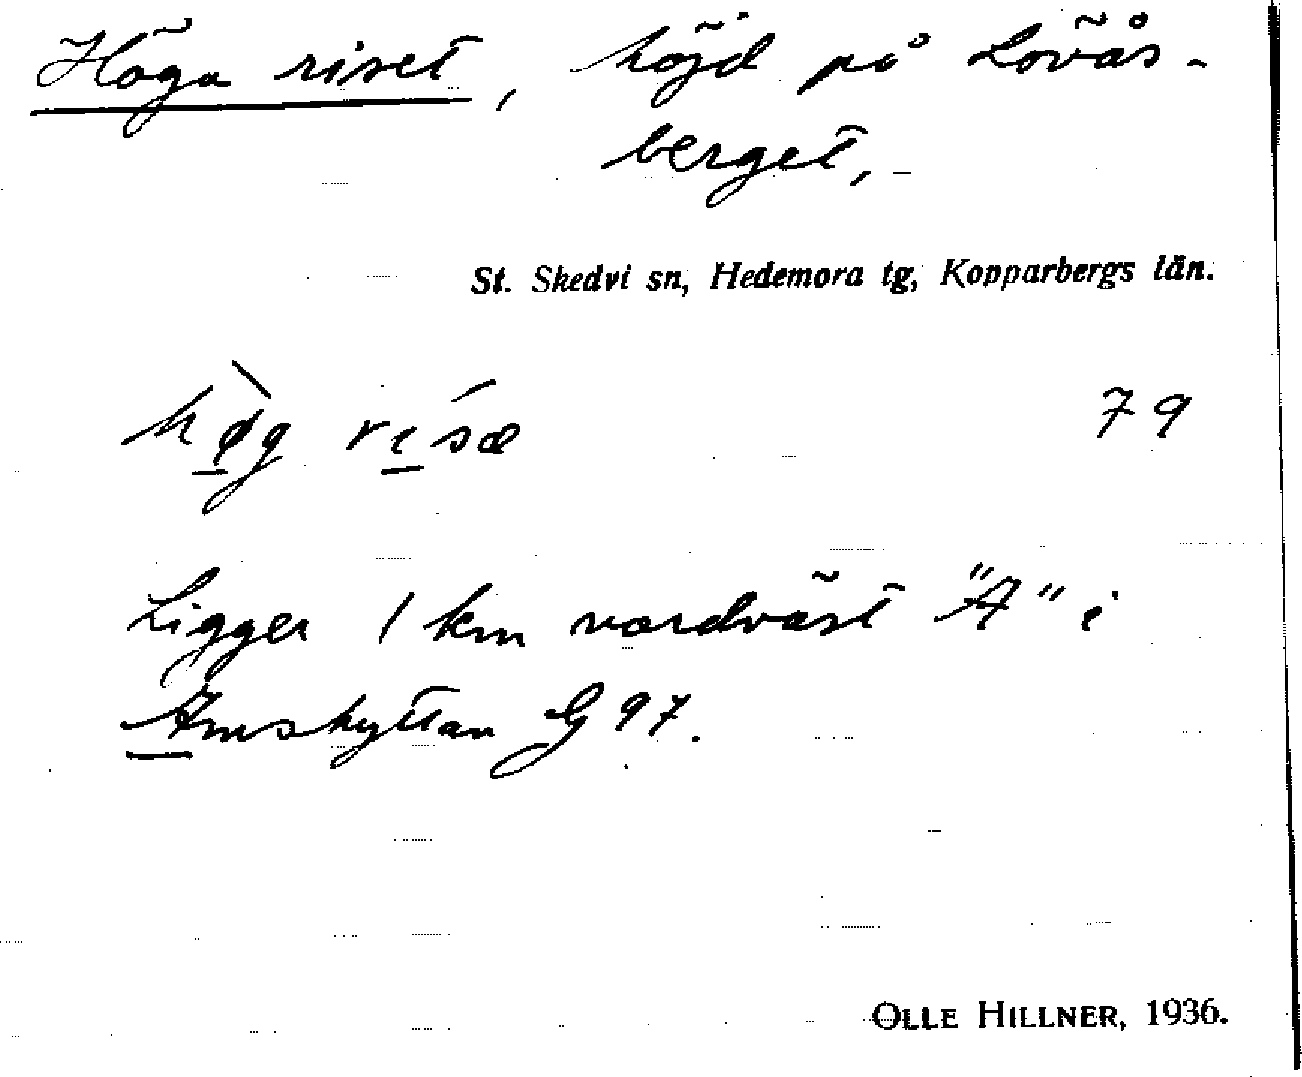 Höga riset, höjd på Lövås-
berget,-
St. Skedvi sn, Hedemora tg, Kopparbergs län.
hø̠̀g rɩ̠́sæ 79
Ligger 1 km nordväst "A" i
Amshyttan G 97.
OLLE HILLNER, 1936.